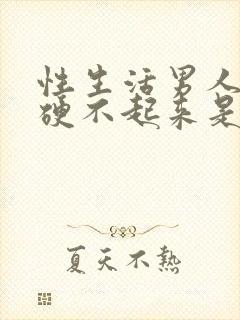 性生活男人
硬不起来是
夏天不热